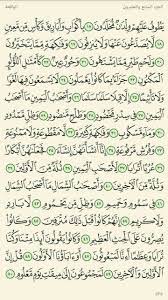 الجزء السابع والعشرون الواقعة
يَطُوفُ عَلَيْهِمْ وِلْدَٰنٌ مُّخَلَّدُونَ ١٧ بِأَكْوَابٍ وَأَبَارِيقَ وَكَأْسٍ مِّن مَّعِينٍ ١٨
لَّا يُصَدَّعُونَ عَنْهَا وَلَا يُنزِفُونَ ١٩ وَفَٰكِهَةٍ مِّمَّا يَتَخَيَّرُونَ ٢٠
وَلَحْمِ طَيْرٍ مِّمَّا يَشْتَهُونَ ٢١ وَحُورٌ عِينٌ ٢٢ كَأَمْثَٰلِ ٱللُّؤْلُؤِ
ٱلْمَكْنُونِ ٢٣ جَزَآءًۢ بِمَا كَانُوا۟ يَعْمَلُونَ ٢٤ لَا يَسْمَعُونَ فِيهَا لَغْوًا
وَلَا تَأْثِيمًا ٢٥ إِلَّا قِيلًا سَلَٰمًا سَلَٰمًا ٢٦ وَأَصْحَٰبُ ٱلْيَمِينِ مَآ أَصْحَٰبُ
ٱلْيَمِينِ ٢٧ فِى سِدْرٍ مَّخْضُودٍ ٢٨ وَطَلْحٍ مَّنضُودٍ ٢٩ وَظِلٍّ مَّمْدُودٍ ٣٠
وَمَآءٍ مَّسْكُوبٍ ٣١ وَفَٰكِهَةٍ كَثِيرَةٍ ٣٢ لَّا مَقْطُوعَةٍ وَلَا مَمْنُوعَةٍ ٣٣
وَفُرُشٍ مَّرْفُوعَةٍ ٣٤ إِنَّآ أَنشَأْنَٰهُنَّ إِنشَآءً ٣٥ فَجَعَلْنَٰهُنَّ أَبْكَارًا ٣٦
عُرُبًا أَتْرَابًا ٣٧ لِّأَصْحَٰبِ ٱلْيَمِينِ ٣٨ ثُلَّةٌ مِّنَ ٱلْأَوَّلِينَ ٣٩
وَثُلَّةٌ مِّنَ ٱلْـَٔاخِرِينَ ٤٠ وَأَصْحَٰبُ ٱلشِّمَالِ مَآ أَصْحَٰبُ ٱلشِّمَالِ ٤١
فِى سَمُومٍ وَحَمِيمٍ ٤٢ وَظِلٍّ مِّن يَحْمُومٍ ٤٣ لَّا بَارِدٍ
وَلَا كَرِيمٍ ٤٤ إِنَّهُمْ كَانُوا۟ قَبْلَ ذَٰلِكَ مُتْرَفِينَ ٤٥ وَكَانُوا۟ يُصِرُّونَ
عَلَى ٱلْحِنثِ ٱلْعَظِيمِ ٤٦ وَكَانُوا۟ يَقُولُونَ أَئِذَا مِتْنَا وَكُنَّا تُرَابًا
وَعِظَٰمًا أَءِنَّا لَمَبْعُوثُونَ ٤٧ أَوَءَابَآؤُنَا ٱلْأَوَّلُونَ ٤٨ قُلْ إِنَّ
ٱلْأَوَّلِينَ وَٱلْـَٔاخِرِينَ ٤٩ لَمَجْمُوعُونَ إِلَىٰ مِيقَٰتِ يَوْمٍ مَّعْلُومٍ ٥٠
٥٣٥